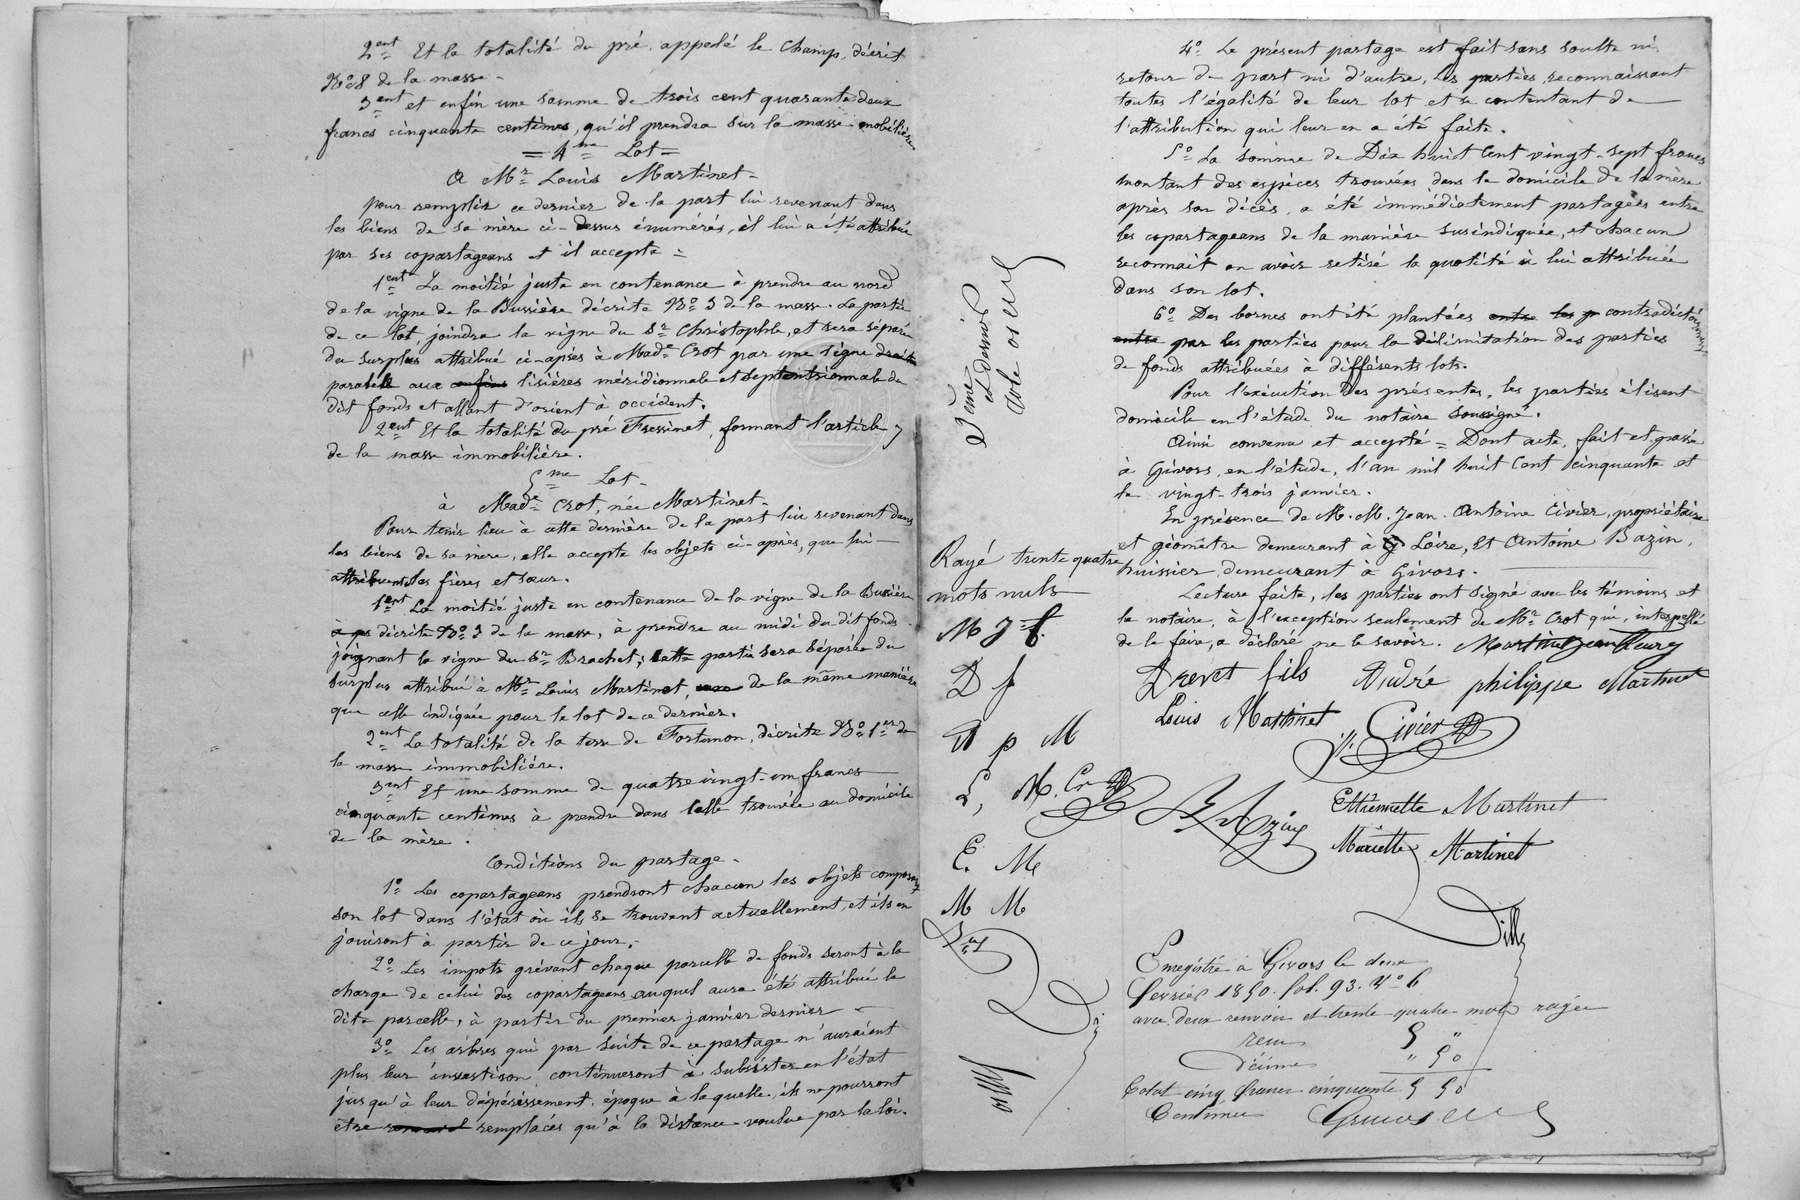 2ent Et la totalité du pré, appelé le Champ, décrit
No 8 de la masse.
3ent et enfin une somme de trois cent quarante deux
francs cinquante centimes, qu'il prendra sur la masse mobilière
= 4me Lot =
A Mr Louis Martinet =
pour remplir ce dernier de la part lui revenant dans
les biens de sa mère ci-dessus énumérés, il lui a été attribué
par ses copartageans et il accepte =
1ent La moitié juste en contenance à prendre au nord
de la vigne de la Bussière décrite No 3 de la masse. La partie
de ce lot, joindra la vigne du Sr Christophle, et sera séparée
du surplus attribué ci-après à Made Crot par une ligne droite
parallèle aux confins lisières méridionnale et septentrionnale du
dit fonds et allant d'orient à occident.
2ent Et la totalité du pré Fressinet, formant l'article 7
de la masse immobilière.
5me Lot -
à Made Crot, née Martinet -
Pour tenir lieu à cette dernière de la part lui revenant dans
les biens de sa mère, elle accepte les objets ci-après, que lui
attribuent ses frères et sœur.
1ent La moitié juste en contenance de la vigne de la Bussière
décrite No 3 de la masse, à prendre au midi du dit fonds
joignant la vigne du Sr Brachet; cette partie sera séparée du
surplus attribué à Mr Louis Martinet de la même manière
que celle indiquée pour le lot de ce dernier.
2ent La totalité de la terre de Fortunon, décrite No 1er de
la masse immobilière.
3ent Et une somme de quatre vingt-un francs
cinquante centimes à prendre dans celle trouvée au domicile
de la mère.
Conditions du partage -
1o Les copartageans prendront chacun les objets composant
son lot dans l'état où ils se trouvent actuellement, et ils en
jouiront à partir de ce jour.
2o Les impots grévant chaque parcelle de fonds seront à la
charge de celui des copartageans auquel aura été attribué la
dite parcelle, à partir du premier janvier dernier
3o Les arbres qui par suite de ce partage n'auraient
plus leur investison continueront à subsister en l'état
jusqu'à leur dépérissement, époque à laquelle, ils ne pourront
être remplacés qu'à la distance voulue par la loi.
5eme
et Dernier
Rayé trente quatre
mots nuls
M J f.
D f
A p M
L, M. Cr
E. M
M M
4o Le présent partage est fait sans soulte ni
retour de part ni d'autre, les parties, reconnaissant
toutes l'égalité de leur lot et se contentant de
l'attribution qui leur en a été faite.
5o La somme de Dix huit cent vingt-sept francs
montant des espèces trouvées dans le domicile de la mère
après son décès, a été immédiatement partagées entre
les copartageans de la manière susindiquée, et chacun
reconnait en avoir retiré la quotité à lui attribuée
dans son lot.
6o Des bornes ont été plantées entre les contradictoirement
entre par les parties pour la délimitation des parties
de fonds attribuées à différents lots.
Pour l'exécution des présentes, les parties élisent
domicile en l'étude du notaire soussigné.
Ainsi convenu et accepté = Dont acte, fait et passé
à Givors, en l'étude, l'an mil huit cent cinquante et
le vingt-trois janvier.
En présence de M. M. Jean-Antoine Civier, propriétaire
et géomètre demeurant à Loire, Et Antoine Bazin,
huissier, demeurant à Givors.
Lecture faite, les parties ont signé avec les témoins et
le notaire, à l'exception seulement de Mr Crot qui, interpellé
de le faire, a déclaré ne le savoir. Martinet jean fleury
Drevet fils André philippe Martinet
Louis Martinet Civier
Bazin Ettiennette Martinet
Mariette Martinet
Enregistré à Givors le deux
février 1850. fol. 93. Vo 6
avec deux renvois et trente-quatre mots rayés
5 "
Décime " 50
Total cinq francs cinquante 5 50
Centimes